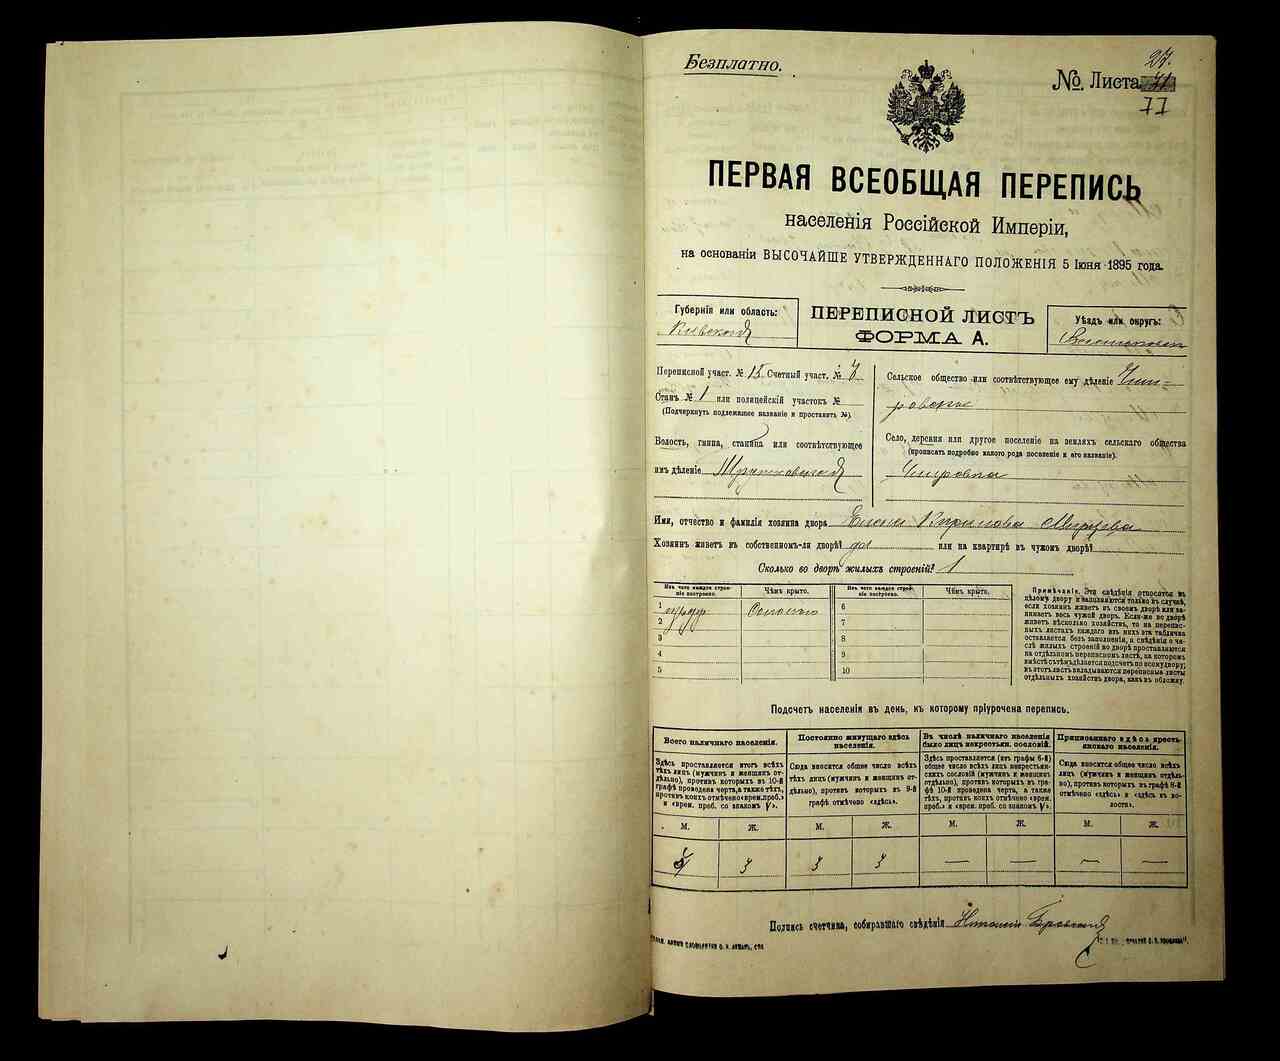 Безплатно.
27.
№ Листа
77
ПЕРВАЯ ВСЕОБЩАЯ ПЕРЕПИСЬ
населенія Россійской Имперіи,
на основаніи ВЫСОЧАЙШЕ УТВЕРЖДЕННАГО ПОЛОЖЕНІЯ 5 Іюня 1895 года.
Губернія или область:
Кіевская
ПЕРЕПИСНОЙ ЛИСТЪ
ФОРМА А.
Уѣздъ или округъ:
Переписной участ. № 15 Счетный участ. №
Станъ № 1 или полицейскій участокъ №
(Подчеркнуть подлежащее названіе и проставить №).
Волость, гмина, станица или соотвѣтствующее
имъ дѣленіе
Сельское общество или соотвѣтствующее ему дѣленіе Чип-
ровское
Село, деревня или другое поселеніе на земляхъ сельскаго общества
(прописать подробно какого рода поселеніе и его названіе).
Имя, отчество и фамилія хозяина двора Кирилова
Хозяинъ живетъ въ собственномъ-ли дворѣ? да или на квартирѣ въ чужомъ дворѣ?
Сколько во дворѣ жилыхъ строеній? 1
Изъ чего каждое строеніе построено.
Чѣмъ крыто.
Изъ чего каждое строеніе построено.
Чѣмъ крыто.
1 Соломою 6
2 7
3 8
4 9
5 10
Примѣчаніе. Эти свѣдѣнія относятся къ
цѣлому двору и заполняются только въ случаѣ,
если хозяинъ живетъ въ своемъ дворѣ или за-
нимаетъ весь чужой дворъ. Если-же во дворѣ
живетъ нѣсколько хозяйствъ, то на перепис-
ныхъ листахъ каждаго изъ нихъ эта табличка
оставляется безъ заполненія, а свѣдѣнія о чи-
слѣ жилыхъ строеній во дворѣ проставляются
на отдѣльномъ переписномъ листѣ, на которомъ
вмѣстѣ съ тѣмъ дѣлается подсчетъ по всему двору;
въ этотъ листъ вкладываются переписные листы
отдѣльныхъ хозяйствъ двора, какъ въ обложку.
Подсчетъ населенія въ день, къ которому пріурочена перепись.
Всего наличнаго населенія.
Постоянно живущаго здѣсь населенія.
Въ числѣ наличнаго населенія было лицъ некрестьян. сословій.
Приписаннаго здѣсь крестьянскаго населенія.
Здѣсь проставляется итогъ всѣхъ
тѣхъ лицъ (мужчинъ и женщинъ от-
дѣльно), противъ которыхъ въ 10-й
графѣ проведена черта, а также тѣхъ,
противъ коихъ отмѣчено «врем. преб.»
и «врем. преб. со знакомъ V».
Сюда вносится общее число всѣхъ
тѣхъ лицъ (мужчинъ и женщинъ от-
дѣльно), противъ которыхъ въ 9-й
графѣ отмѣчено «здѣсь».
Здѣсь проставляется (изъ графы 6-й)
общее число всѣхъ лицъ некрестьян-
скихъ сословій (мужчинъ и женщинъ
отдѣльно), противъ которыхъ въ гра-
фѣ 10-й проведена черта, а также
тѣхъ, противъ коихъ отмѣчено «врем.
преб.» и «врем. преб. со знакомъ V».
Сюда вносится общее число всѣхъ
лицъ (мужчинъ и женщинъ отдѣль-
но), противъ которыхъ въ графѣ 8-й
отмѣчено «здѣсь» и «здѣсь въ во-
лости».
М. Ж. М. Ж. М. Ж. М. Ж.
3 3 3 — — — —
Подпись счетчика, собиравшаго свѣдѣнія